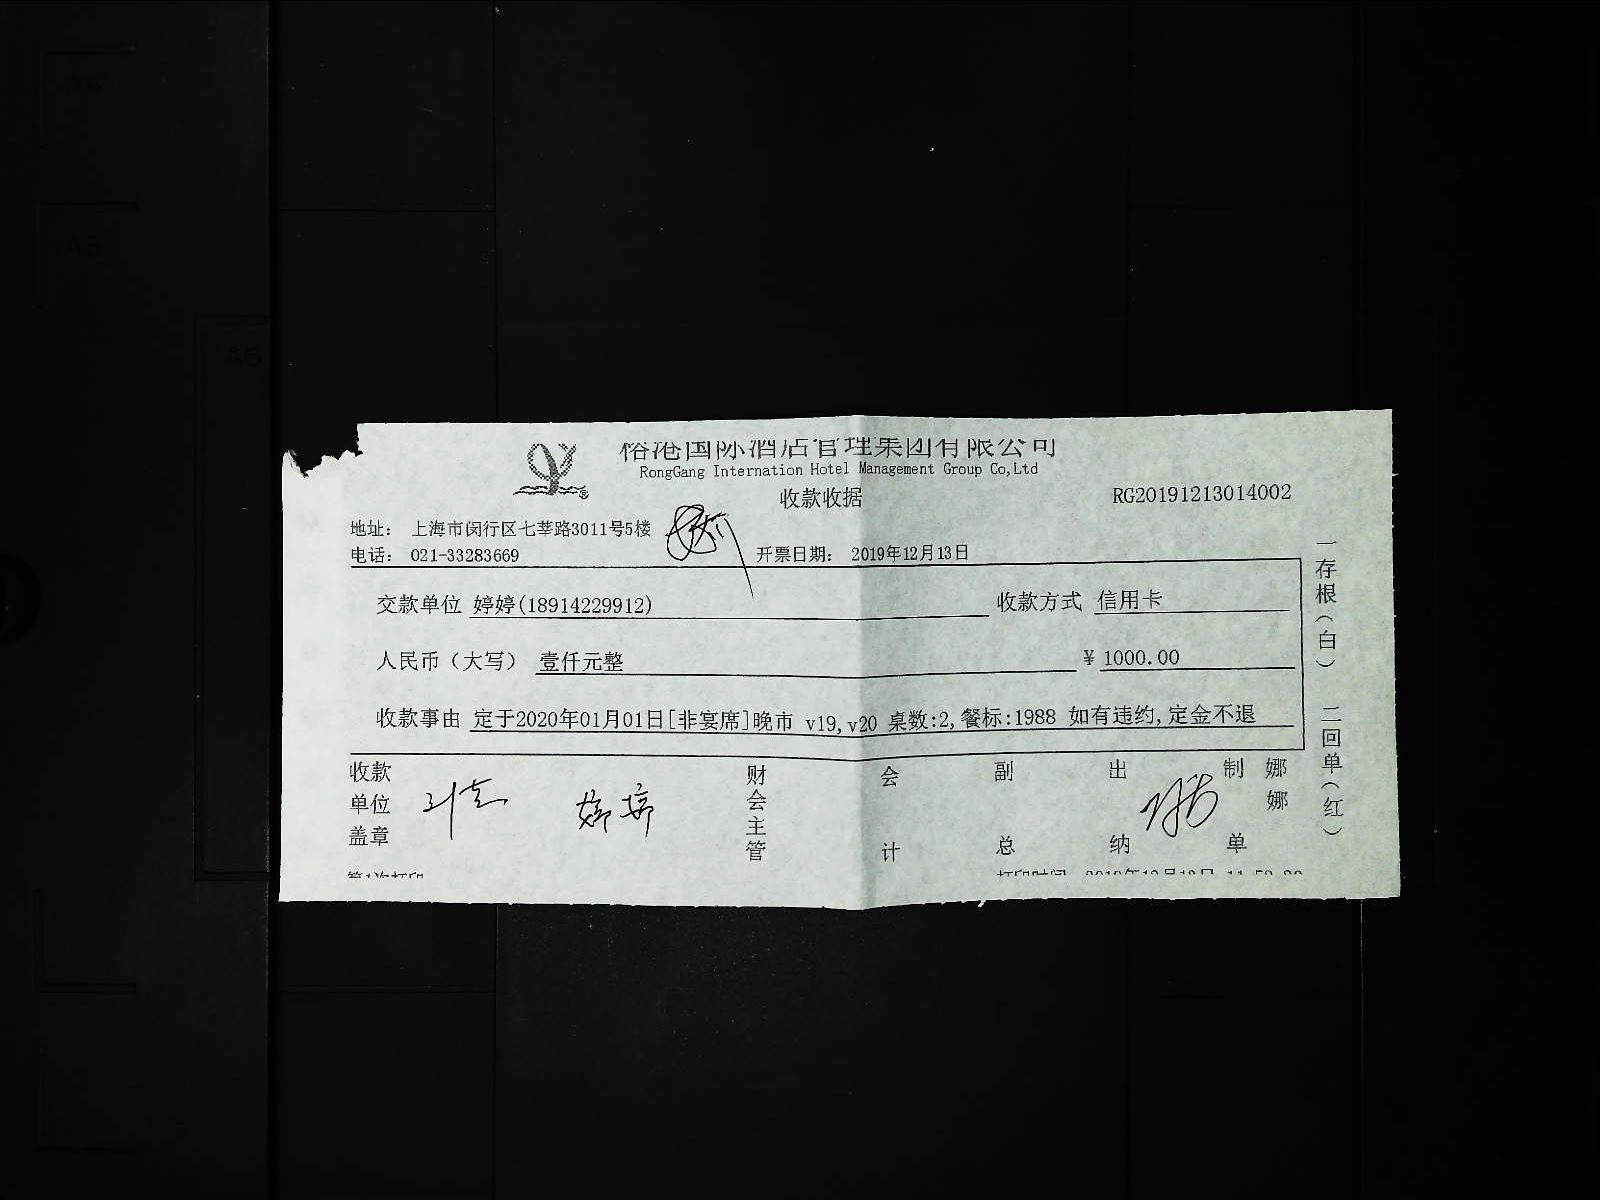 国际酒店管理集团有限公司
RongGang Internation Hotel Management Group Co,Ltd
收款收据
RG20191213014002
地址： 上海市闵行区七莘路3011号5楼
电话： 021-33283669
开票日期： 2019年12月13日
交款单位 婷婷(18914229912)
收款方式 信用卡
人民币（大写） 壹仟元整
¥ 1000.00
收款事由 定于2020年01月01日[非宴席]晚市 v19,v20 桌数:2,餐标:1988 如有违约,定金不退
一存根（白） 二回单（红）
收款单位盖章
婷婷
财会主管
会计
副总
出纳
制单
娜娜
第1次打印
打印时间
A5
A6